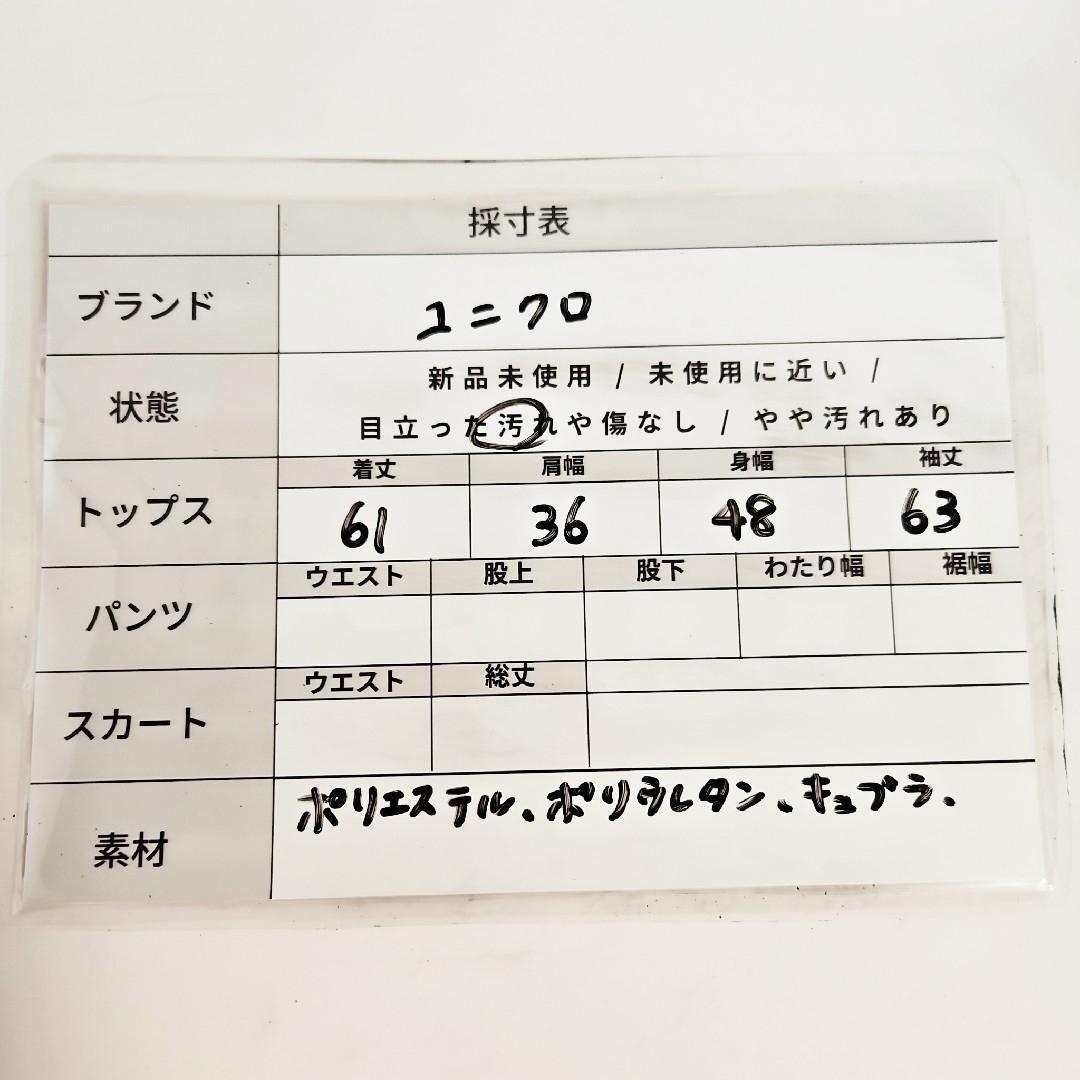 採寸表
ブランド ユニクロ
状態 新品未使用 / 未使用に近い /
目立った汚れや傷なし / やや汚れあり
トップス 着丈 肩幅 身幅 袖丈
61 36 48 63
パンツ ウエスト 股上 股下 わたり幅 裾幅
スカート ウエスト 総丈
素材 ポリエステル、ポリウレタン、キュプラ、